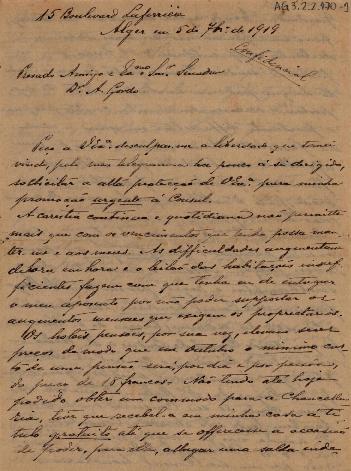 AG3.2.2.170-1
15 Boulevard Laferrière
Alger em 5 de 7bro de 1919
Confidencial
Prezado Amigo e Exmo Snr. Senador
Dr. A. Gordo
Peço a V. Exa. desculpar-me a liberdade que tomei
vindo, pelo meu telegramma ha pouco á si dirigido,
solicitar a alta protecção de V. Exa. para minha
promoção urgente á Consul.
A carestia continua e quotidiana não permitte
mais que com os vencimentos que tenho possa man-
ter-me e aos meus. As difficuldades augmentam
de hora em hora e o leilão das habitações insuf-
ficientes fazem com que tenha eu de entregar
o meu aposento por não poder supportar os
augmentos mensaes que exigem os proprietarios.
Os hoteis pensões, por sua vez, elevam seus
preços de modo que em Outubro o minimo cus-
to de uma pensão será, por dia e por pessoa,
do preço de 18 francos. Não tendo até hoje
podido obter um commodo para a Chancella-
ria, tive que recebel-a em minha casa a ti-
tulo gratuito até que se offerecesse a occasião
de poder, para ella, allugar uma salla inde-